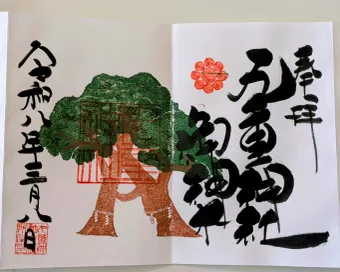 奉拝
九重神社
御神木
令和八年三月八日